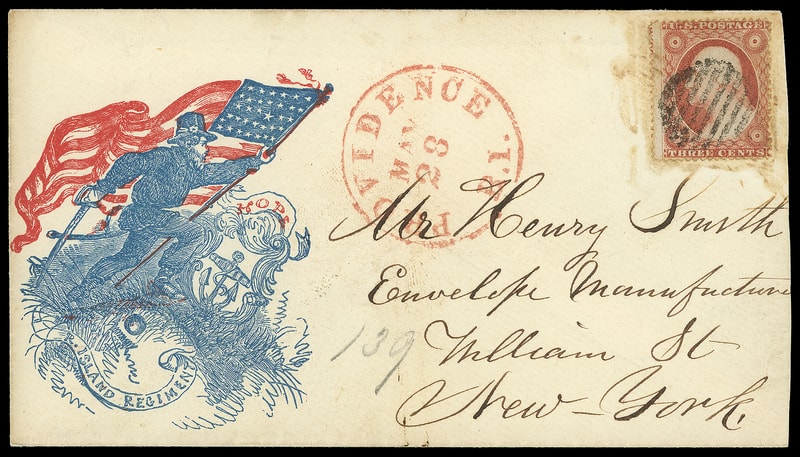 U.S. POSTAGE
THREE CENTS
PROVIDENCE R.I.
MAY
28
HOPE
ISLAND REGIMENT
Mr Henry Smith
Envelope Manufacture
William St
New-York.
139